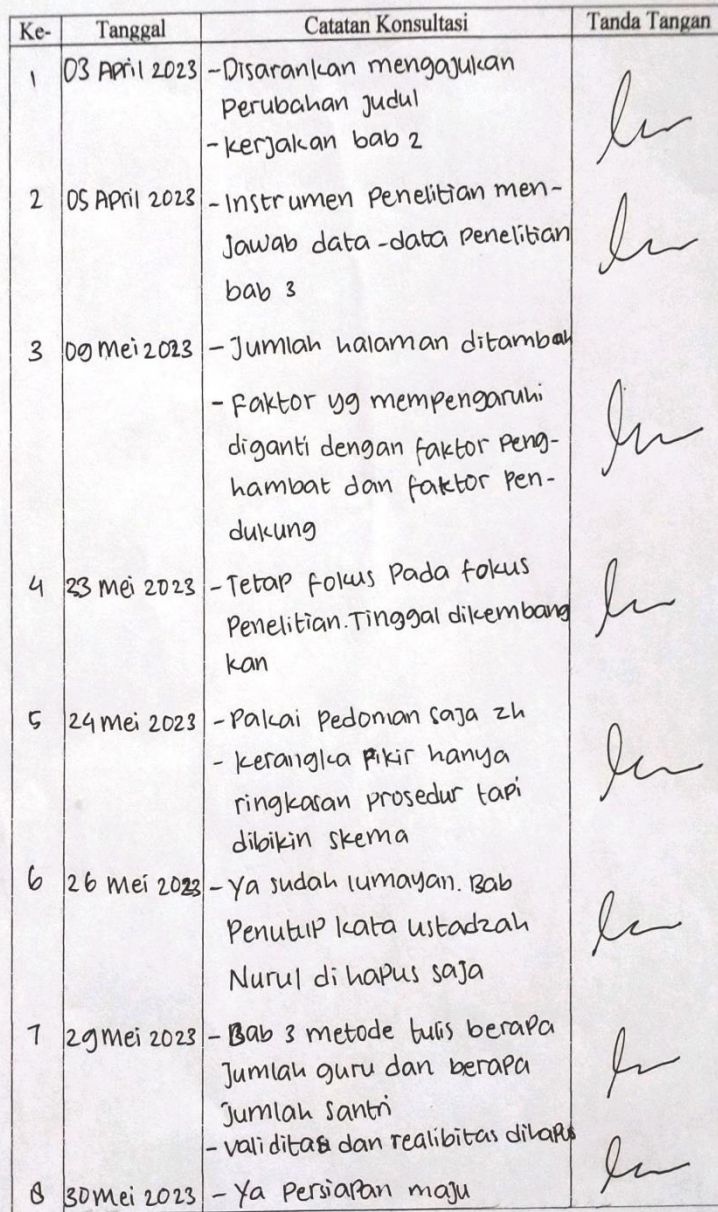 Ke- Tanggal Catatan Konsultasi Tanda Tangan
1 03 April 2023 - Disarankan mengajukan
perubahan judul
- kerjakan bab 2
2 05 April 2023 - Instrumen penelitian men-
jawab data-data penelitian
bab 3
3 09 Mei 2023 - Jumlah halaman ditambah
- Faktor yg mempengaruhi
diganti dengan faktor peng-
hambat dan faktor pen-
dukung
4 23 Mei 2023 - Tetap fokus pada fokus
penelitian. Tinggal dikembang
kan
5 24 Mei 2023 - Pakai pedoman saja zh
- kerangka pikir hanya
ringkasan prosedur tapi
dibikin skema
6 26 Mei 2023 - Ya sudah lumayan. Bab
Penutup kata ustadzah
Nurul di hapus saja
7 29 Mei 2023 - Bab 3 metode tulis berapa
jumlah guru dan berapa
jumlah santri
- validitas dan realibitas dihapus
8 30 Mei 2023 - Ya persiapan maju